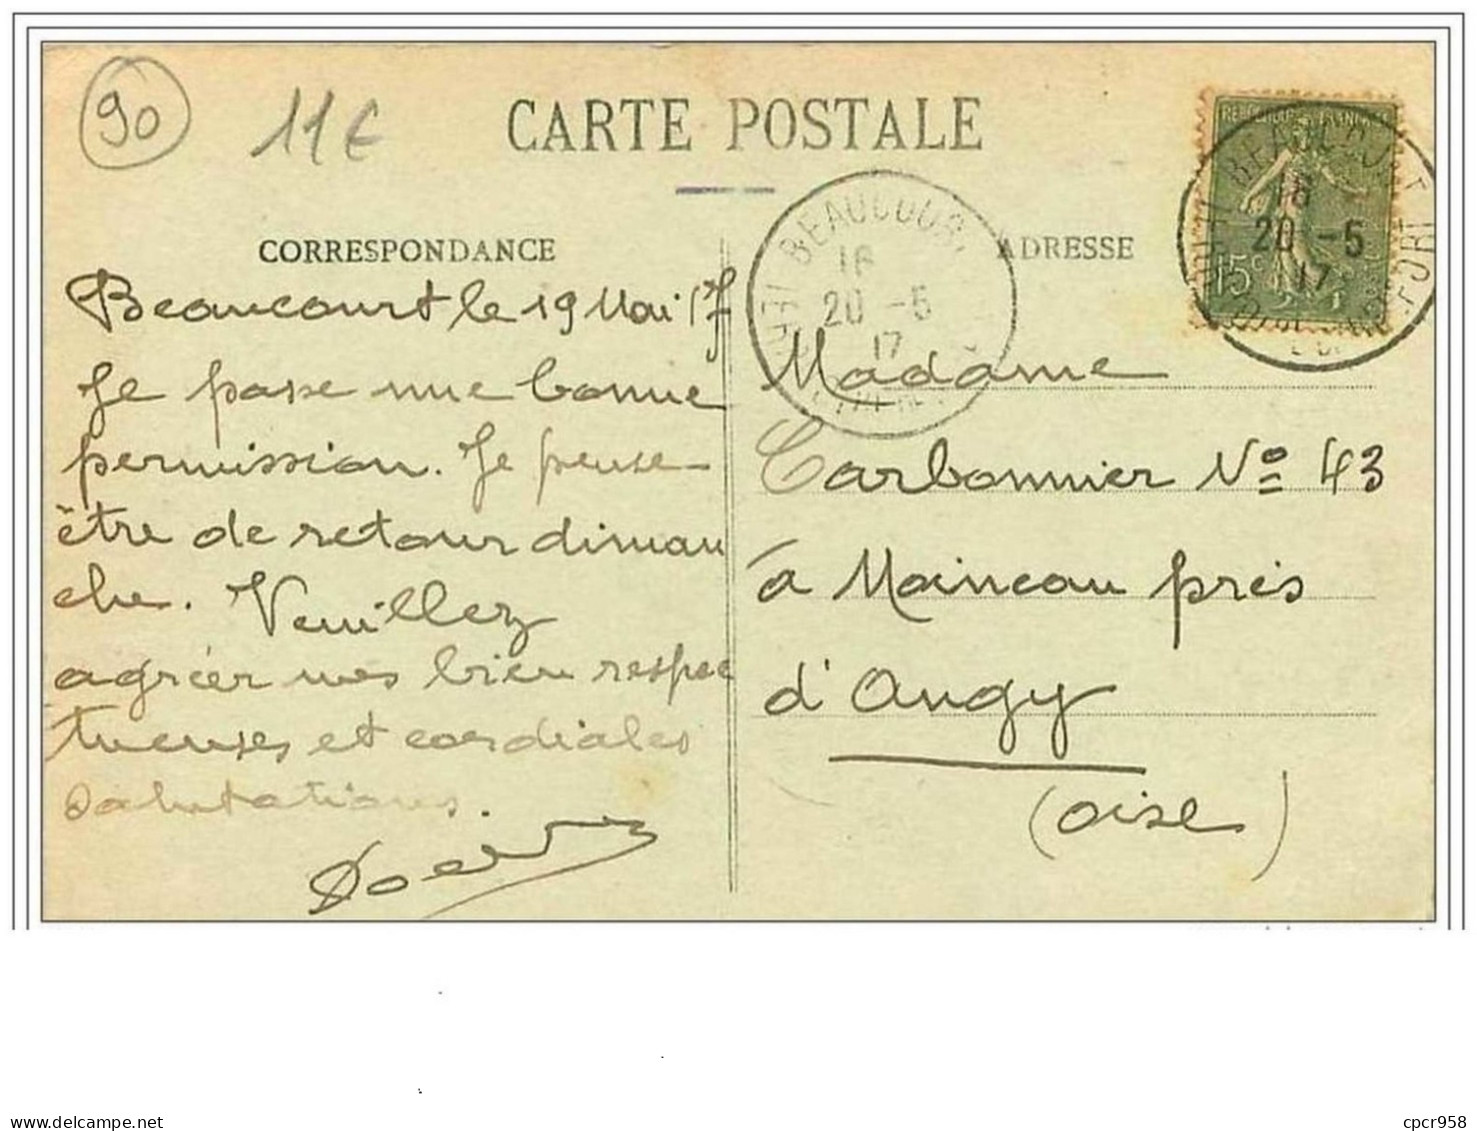 90
11€
CARTE POSTALE
CORRESPONDANCE
ADRESSE
REPUBLIQUE FRANÇAISE
15c
BEAUCOURT
16
20 -5
17
BEAUCOURT
16
20 -5
17
Beaucourt le 19 Mai 17
Je passe une bonne
permission. Je pense
être de retour diman
che. Veuillez
agréer mes bien respec
tueuses et cordiales
salutations.
Madame
Carbonnier No 43
à Moineau près
d'Angy
(oise)
cpcr958